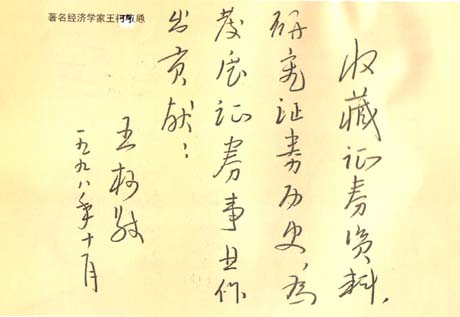 著名经济学家王柯敬
收藏证券资料,
研究证券历史,为
发展证券事业作
出贡献!
王柯敬
一九九八年十月